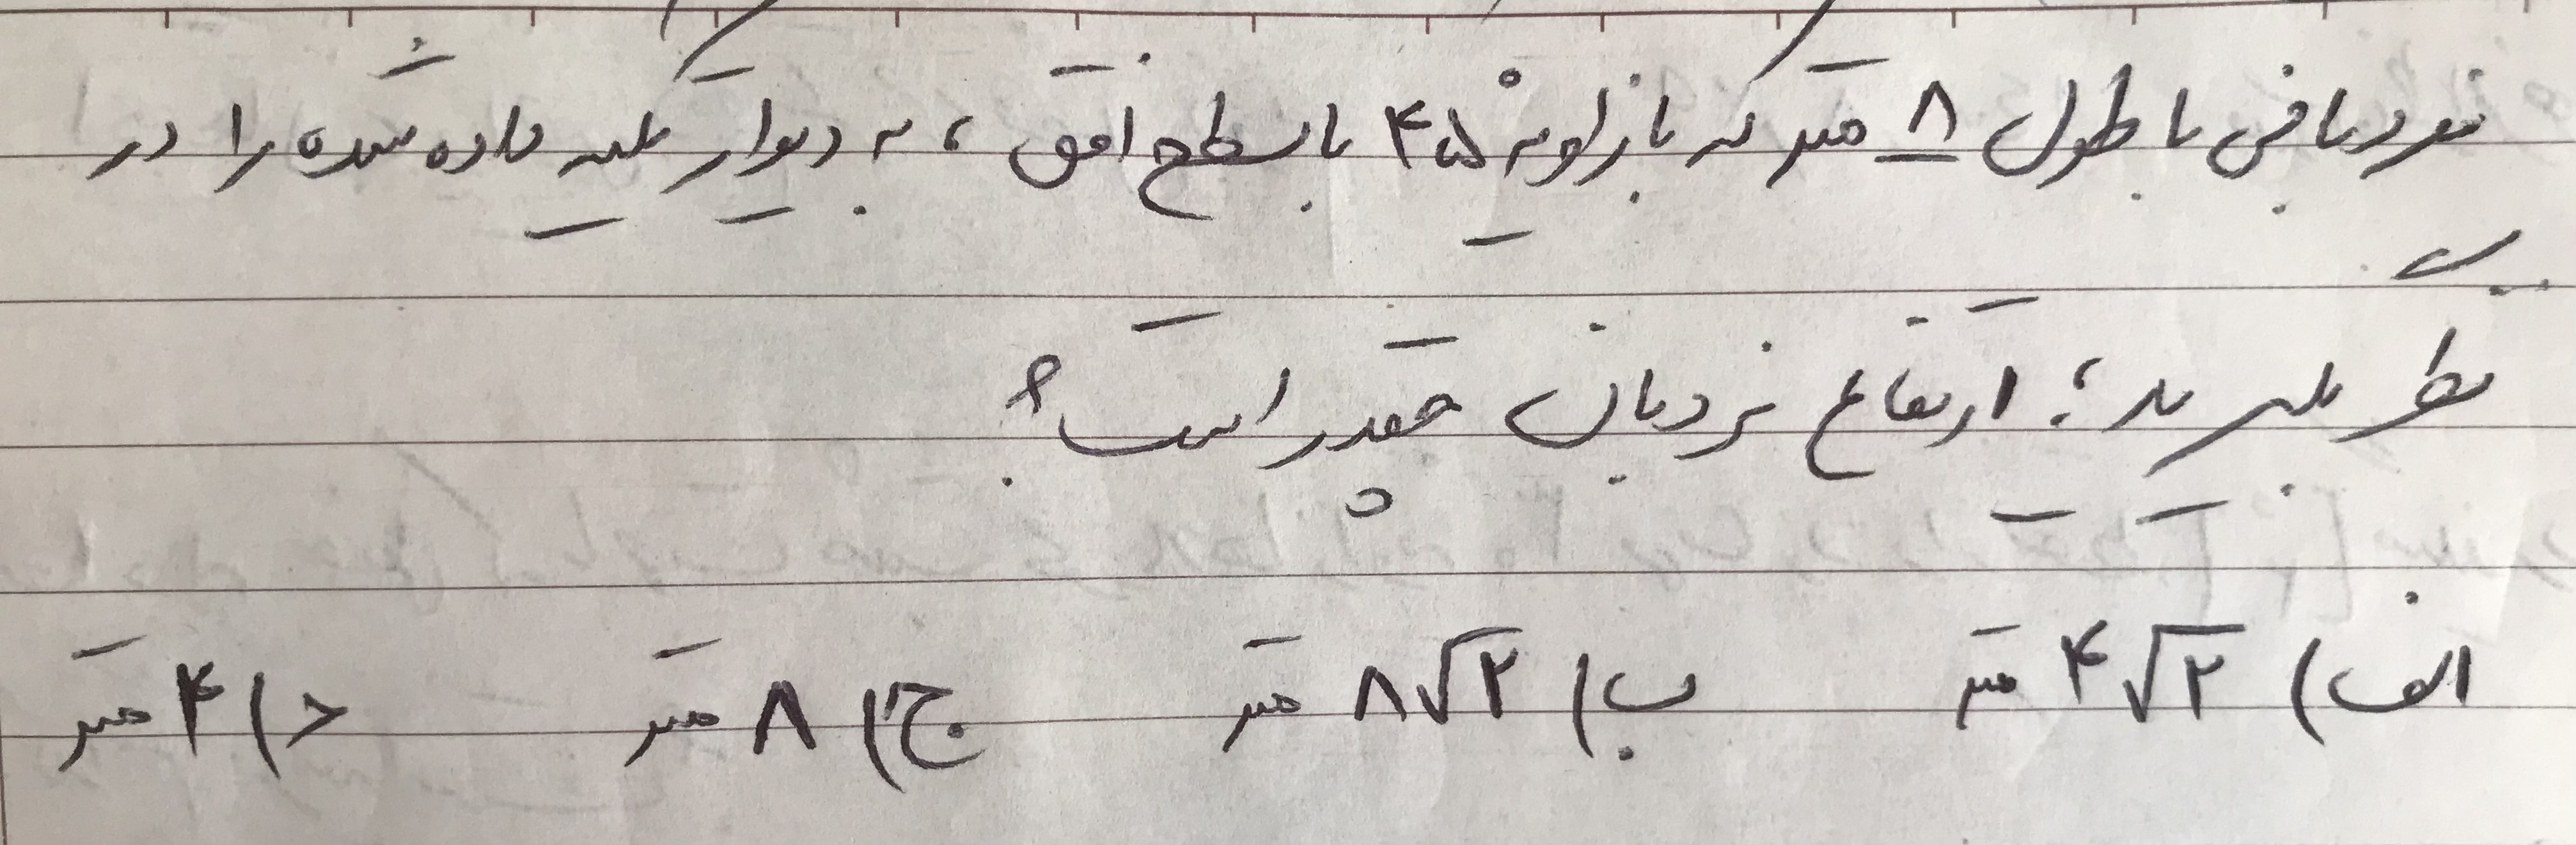 نردبانی با طول ۸ متر که با زاویه ۴۵° با سطح افق ، به دیوار تکیه داده شده را در
نظر بگیرید ؛ ارتفاع نردبان چقدر است ؟
الف) ۴√۲ متر ب) ۸√۲ متر ج) ۸ متر د) ۴ متر